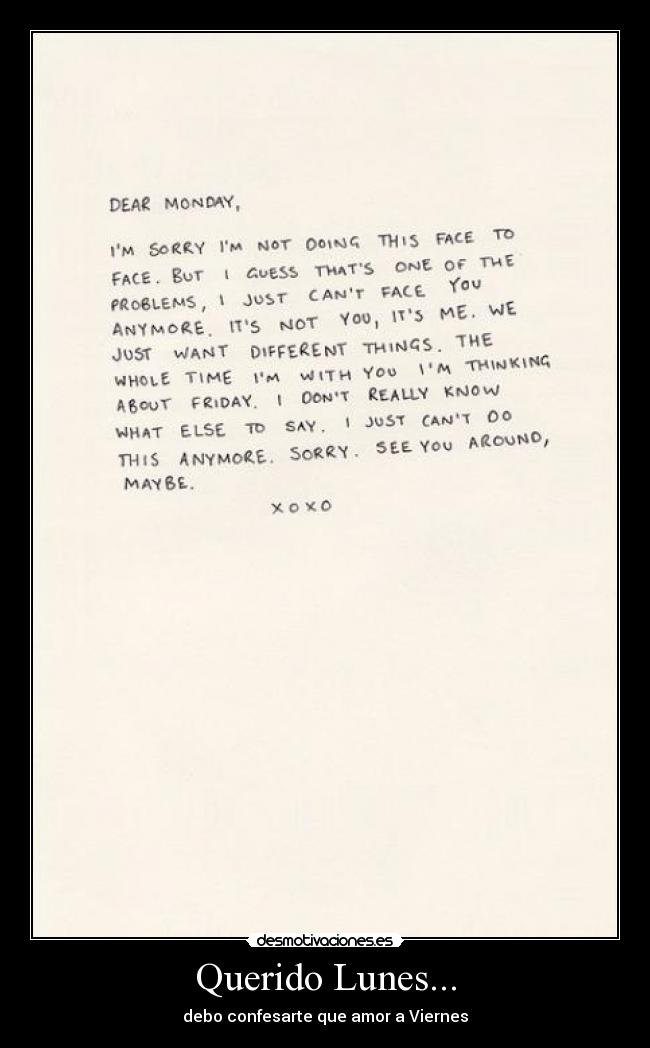 DEAR MONDAY,
I'M SORRY I'M NOT DOING THIS FACE TO
FACE. BUT I GUESS THAT'S ONE OF THE
PROBLEMS, I JUST CAN'T FACE YOU
ANYMORE. IT'S NOT YOU, IT'S ME. WE
JUST WANT DIFFERENT THINGS. THE
WHOLE TIME I'M WITH YOU I'M THINKING
ABOUT FRIDAY. I DON'T REALLY KNOW
WHAT ELSE TO SAY. I JUST CAN'T DO
THIS ANYMORE. SORRY. SEE YOU AROUND,
MAYBE.
XOXO
desmotivaciones.es
Querido Lunes...
debo confesarte que amor a Viernes